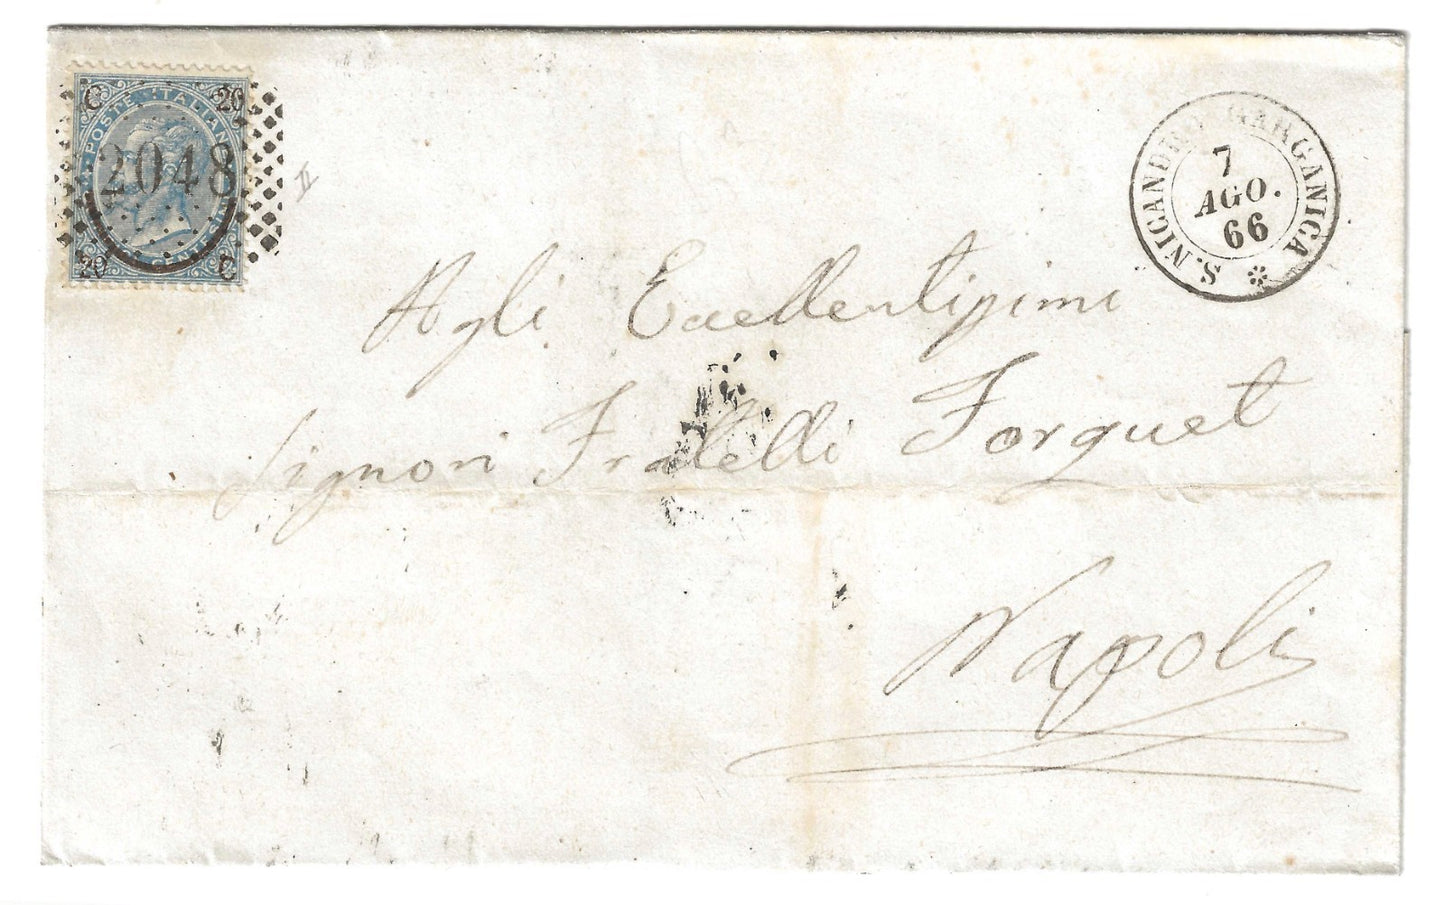 C 20
POSTE ITALIANE
2048
20 C
II
S. NICANDRO GARGANICA
7
AGO.
66
Agli Eccellentissimi
Signori Fratelli Forquet
Napoli